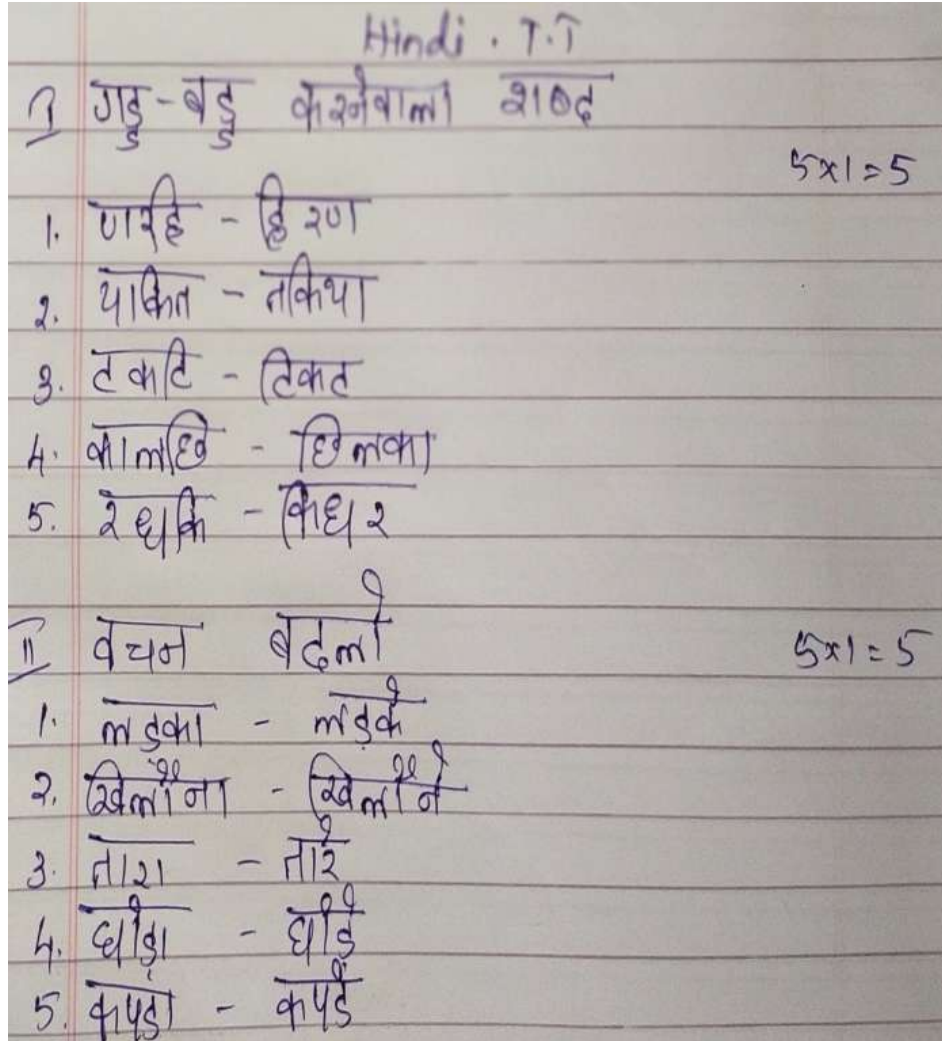 Hindi . T.T
I गड्डु-बड्डु करनेवाला शब्द
5x1=5
1. णरहि - हिरण
2. याकित - तकिया
3. टकटि - टिकट
4. कालछि - छिलका
5. रधकि - किधर
II वचन बदलो 5x1=5
1. लड़का - लड़के
2. खिलौना - खिलौने
3. तारा - तारे
4. घोड़ा - घोड़े
5. कपड़ा - कपड़े